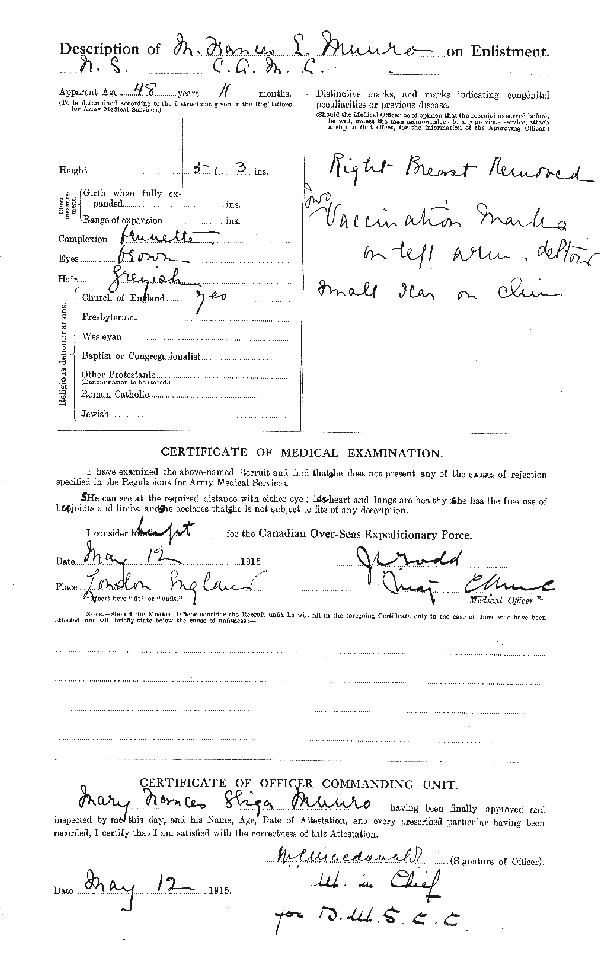 Description of M. Frances E. Munro on Enlistment.
N. S. C. A. M. C.
Apparent Age 48 years 11 months.
(To be determined according to the instructions given in the Regulations for Army Medical Services.)
Distinctive marks, and marks indicating congenital
peculiarities or previous disease.
(Should the Medical Officer be of opinion that the recruit has served before, he will, unless the man acknowledges to any previous service, attach a slip to that effect, for the information of the Approving Officer.)
Height 5 ft. 3 ins.
Girth when fully expanded ins.
Range of expansion ins.
Complexion brunette
Eyes brown
Hair Greyish
Right Breast Removed
Two
Vaccination Marks
on left arm, deltoid
Small scar on chin
Religious denominations.
Church of England yes
Presbyterian
Wesleyan
Baptist or Congregationalist
Other Protestants
(Denomination to be stated.)
Roman Catholic
Jewish
CERTIFICATE OF MEDICAL EXAMINATION.
I have examined the above-named Recruit and find that she does not present any of the causes of rejection
specified in the Regulations for Army Medical Services.
She can see at the required distance with either eye; her heart and lungs are healthy; she has the free use of
her joints and limbs, and she declares that she is not subject to fits of any description.
I consider her fit for the Canadian Over-Seas Expeditionary Force.
Date May 12 1915
Place London England
Medical Officer
*Insert here "fit" or "unfit."
NOTE.—Should the Medical Officer consider the Recruit unfit, he will fill in the foregoing Certificate only in the case of those who have been attested, and will briefly state below the cause of unfitness:—
CERTIFICATE OF OFFICER COMMANDING UNIT.
Mary Frances Eliza Munro having been finally approved and
inspected by me this day, and his Name, Age, Date of Attestation, and every prescribed particular having been
recorded, I certify that I am satisfied with the correctness of this Attestation.
(Signature of Officer).
M. in Chief
Date May 12 1915.
for D. M. S. C. C.